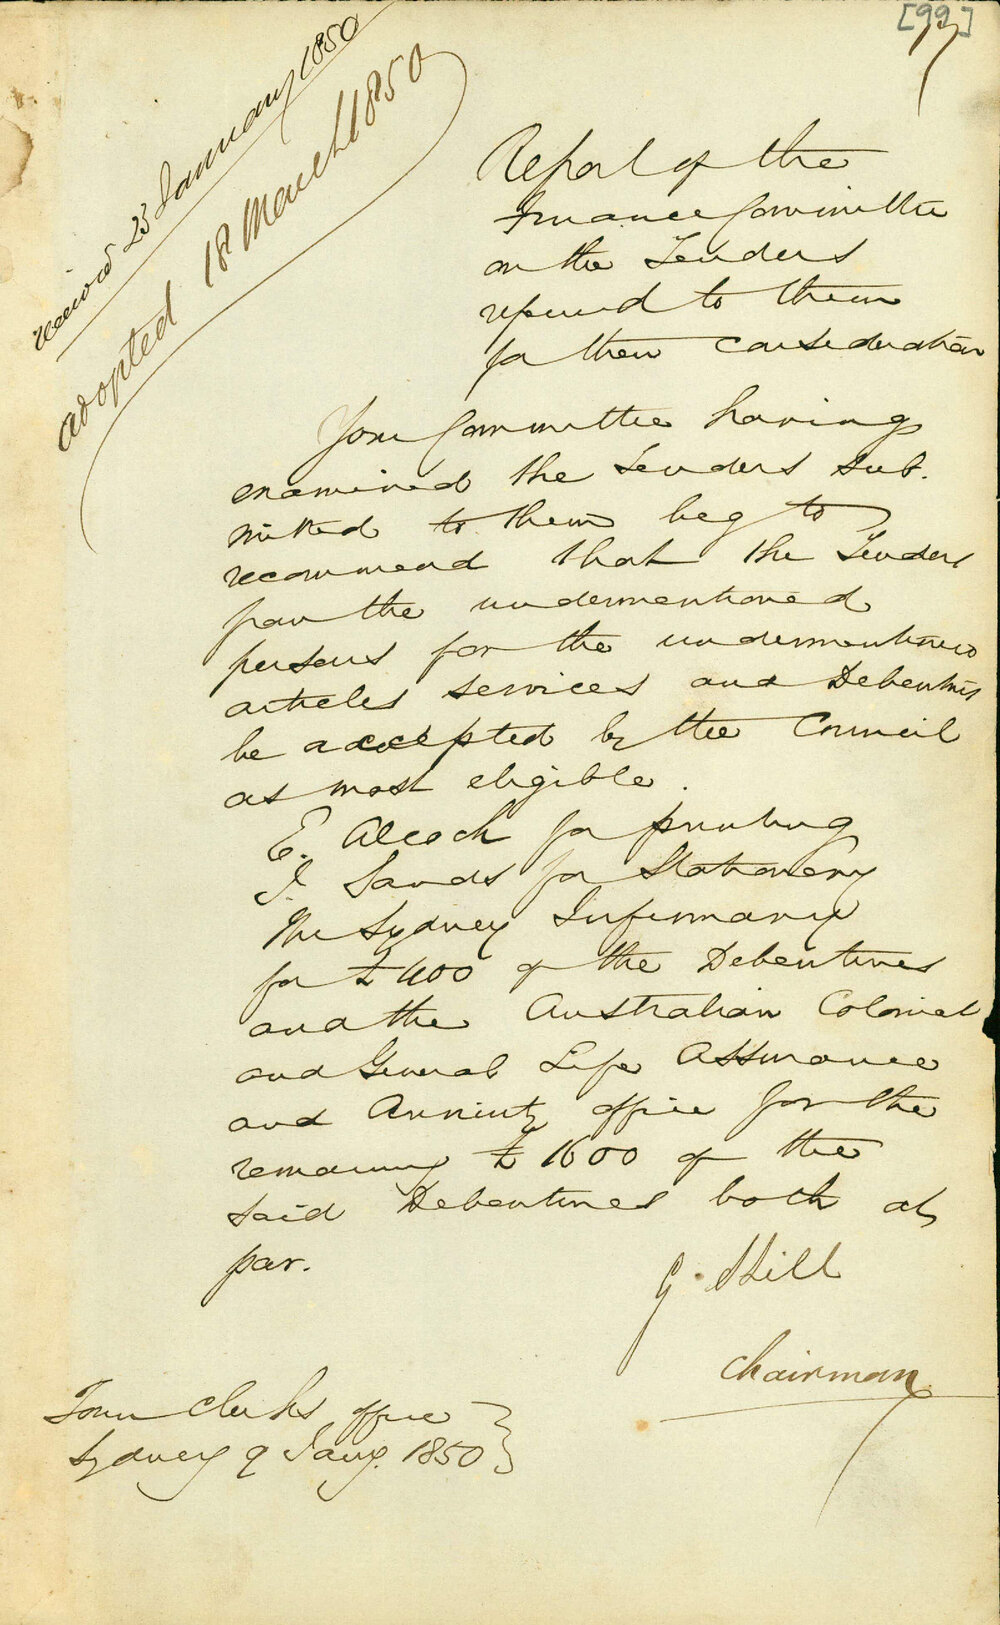 [99]
received 23 January 1850
adopted 18 March 1850
Report of the
Finance Committee
on the Tenders
referred to them
for their consideration
Your Committee having
examined the Tenders sub-
mitted to them beg to
recommend that the Tenders
from the undermentioned
persons for the undermentioned
articles services and Debentures
be accepted by the Council
as most eligible.
E. Alcock for printing
J. Sands for Stationery
The Sydney Infirmary
for £400 of the Debentures
and the Australian Colonial
and General Life Assurance
and Annuity office for the
remaining £1600 of the
said Debentures both at
par.
G. Hill
Chairman
Town Clerks office
Sydney 9 Jany. 1850